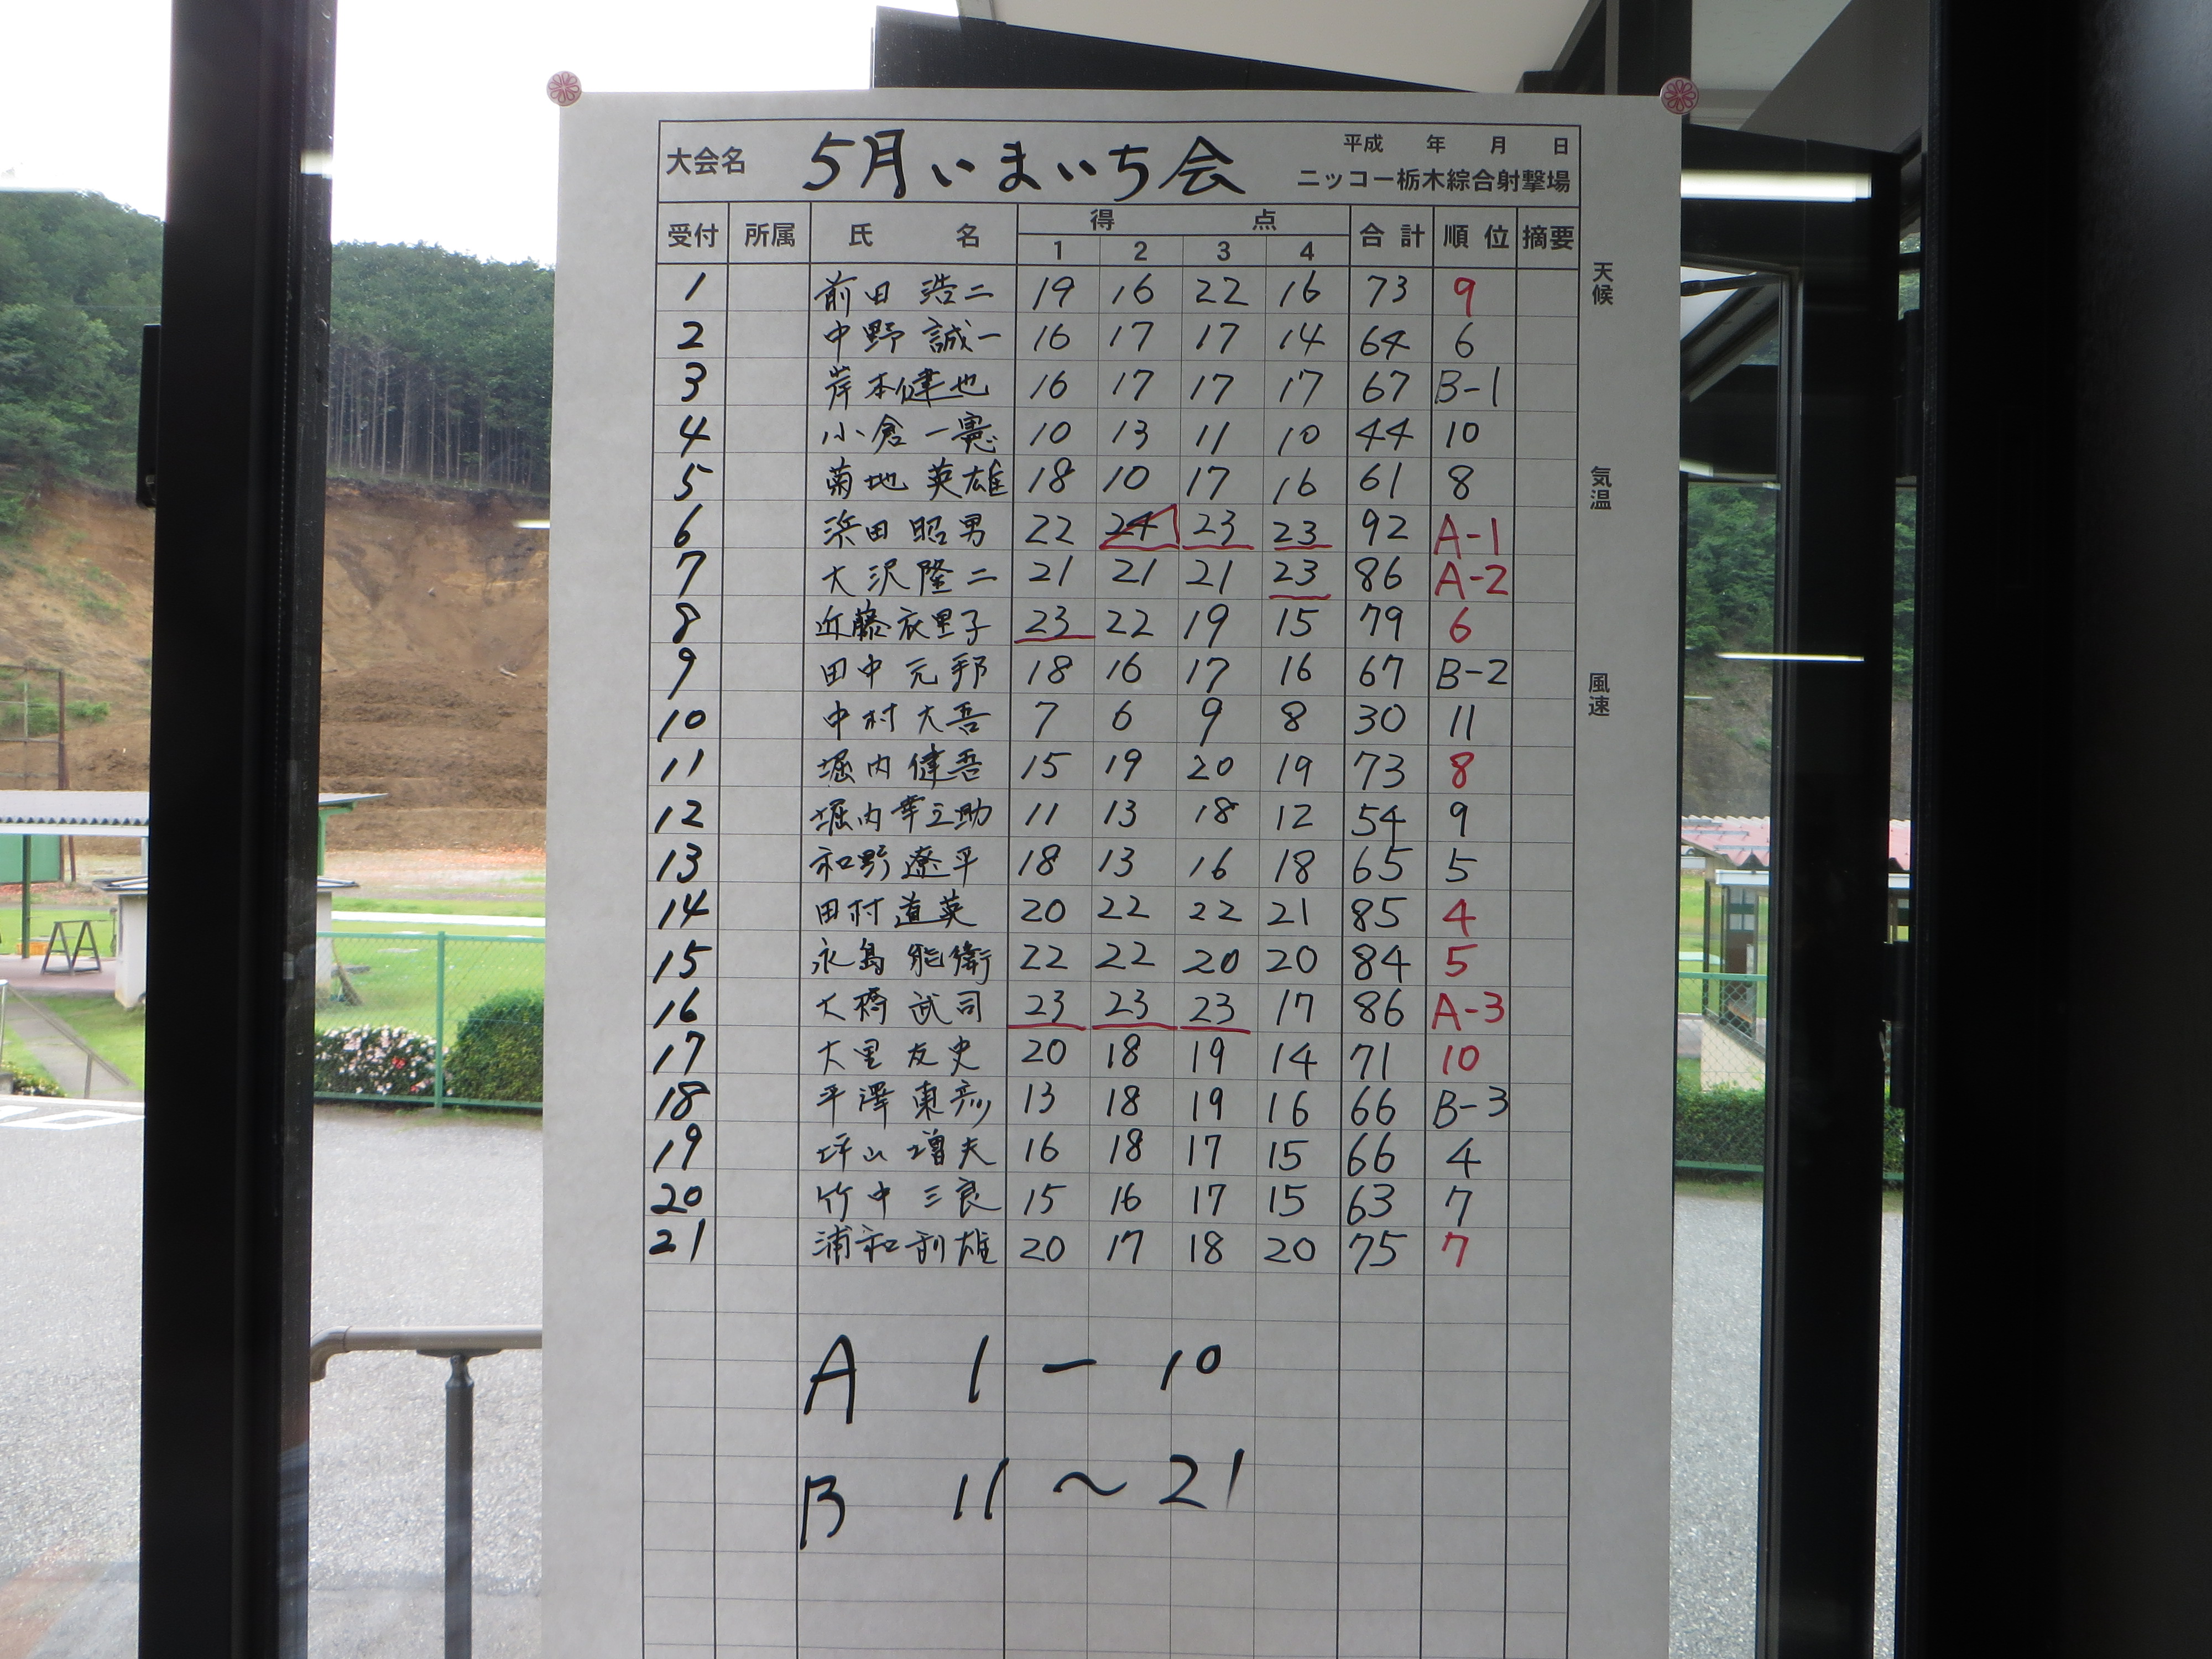 大会名 5月いまいち会 平成 年 月 日
ニッコー栃木綜合射撃場
受付 所属 氏 名 得 点 合計 順位 摘要
1 2 3 4
1 前田 浩二 19 16 22 16 73 9
2 中野 誠一 16 17 17 14 64 6
3 岸本健也 16 17 17 17 67 B-1
4 小倉 一憲 10 13 11 10 44 10
5 菊地 英雄 18 10 17 16 61 8
6 浜田 昭男 22 24 23 23 92 A-1
7 大沢隆二 21 21 21 23 86 A-2
8 近藤衣里子 23 22 19 15 79 6
9 田中 元邦 18 16 17 16 67 B-2
10 中村大吾 7 6 9 8 30 11
11 堀内健吾 15 19 20 19 73 8
12 堀内幸之助 11 13 18 12 54 9
13 和野遼平 18 13 16 18 65 5
14 田村道英 20 22 22 21 85 4
15 永島能衛 22 22 20 20 84 5
16 大橋武司 23 23 23 17 86 A-3
17 大里友史 20 18 19 14 71 10
18 平澤東彦 13 18 19 16 66 B-3
19 坪山増夫 16 18 17 15 66 4
20 竹中三良 15 16 17 15 63 7
21 浦和利雄 20 17 18 20 75 7
A 1 — 10
B 11 ~ 21
天候
気温
風速